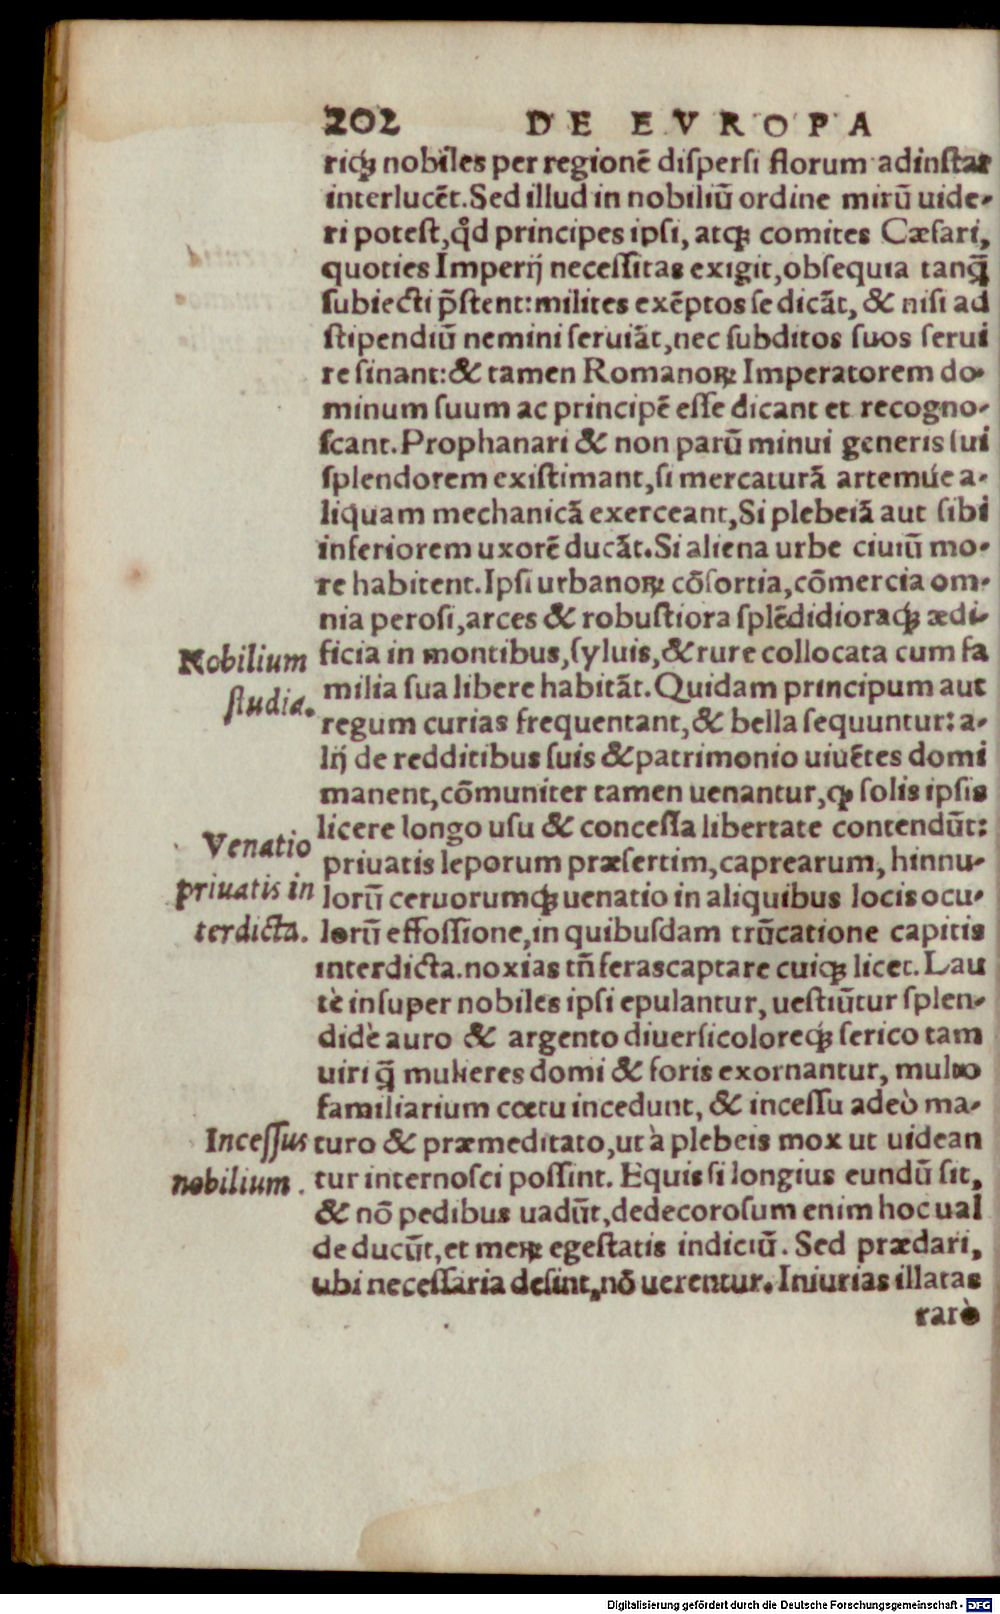 202 DE EVROPA
ricꝫ nobiles per regionē dispersi florum ad instar
interlucēt. Sed illud in nobiliū ordine mirū uide-
ri potest, qd̊ principes ipsi, atqꝫ comites Cæsari,
quoties Imperij necessitas exigit, obsequia tanq̄
subiecti p̄stent: milites exēptos se dicāt, & nisi ad
stipendiū nemini seruiāt, nec subditos suos serui
re sinant: & tamen Romanoꝝ Imperatorem do-
minum suum ac principē esse dicant et recogno-
scant. Prophanari & non parū minui generis sui
splendorem existimant, si mercaturā artemúe a-
liquam mechanicā exerceant, Si plebeiā aut sibi
inferiorem uxorē ducāt. Si aliena urbe ciuiū mo-
re habitent. Ipsi urbanoꝝ cōsortia, cōmercia om-
nia perosi, arces & robustiora splēdidioraqꝫ ædi-
Nobilium ficia in montibus, syluis, & rure collocata cum fa
studia. milia sua libere habitāt. Quidam principum aut
regum curias frequentant, & bella sequuntur: a-
lij de redditibus suis & patrimonio uiuētes domi
manent, cōmuniter tamen uenantur, ꝙ solis ipsis
licere longo usu & concessa libertate contendūt:
Venatio priuatis leporum præsertim, caprearum, hinnu-
priuatis in lorū ceruorumqꝫ uenatio in aliquibus locis ocu-
terdicta. lorū effossione, in quibusdam trūcatione capitis
interdicta. noxias tn̄ feras captare cuiqꝫ licet. Lau
tè insuper nobiles ipsi epulantur, uestiūtur splen-
didè auro & argento diuersicoloreqꝫ serico tam
uiri q̄ mulieres domi & foris exornantur, multo
familiarium cœtu incedunt, & incessu adeò ma-
Incessus turo & præmeditato, ut à plebeis mox ut uidean
nobilium. tur internosci possint. Equis si longius eundū sit,
& nō pedibus uadūt, dedecorosum enim hoc ual
de ducūt, et meꝝ egestatis indiciū. Sed prædari,
ubi necessaria desint, nō uerentur. Iniurias illatas
rarò
Digitalisierung gefördert durch die Deutsche Forschungsgemeinschaft - DFG